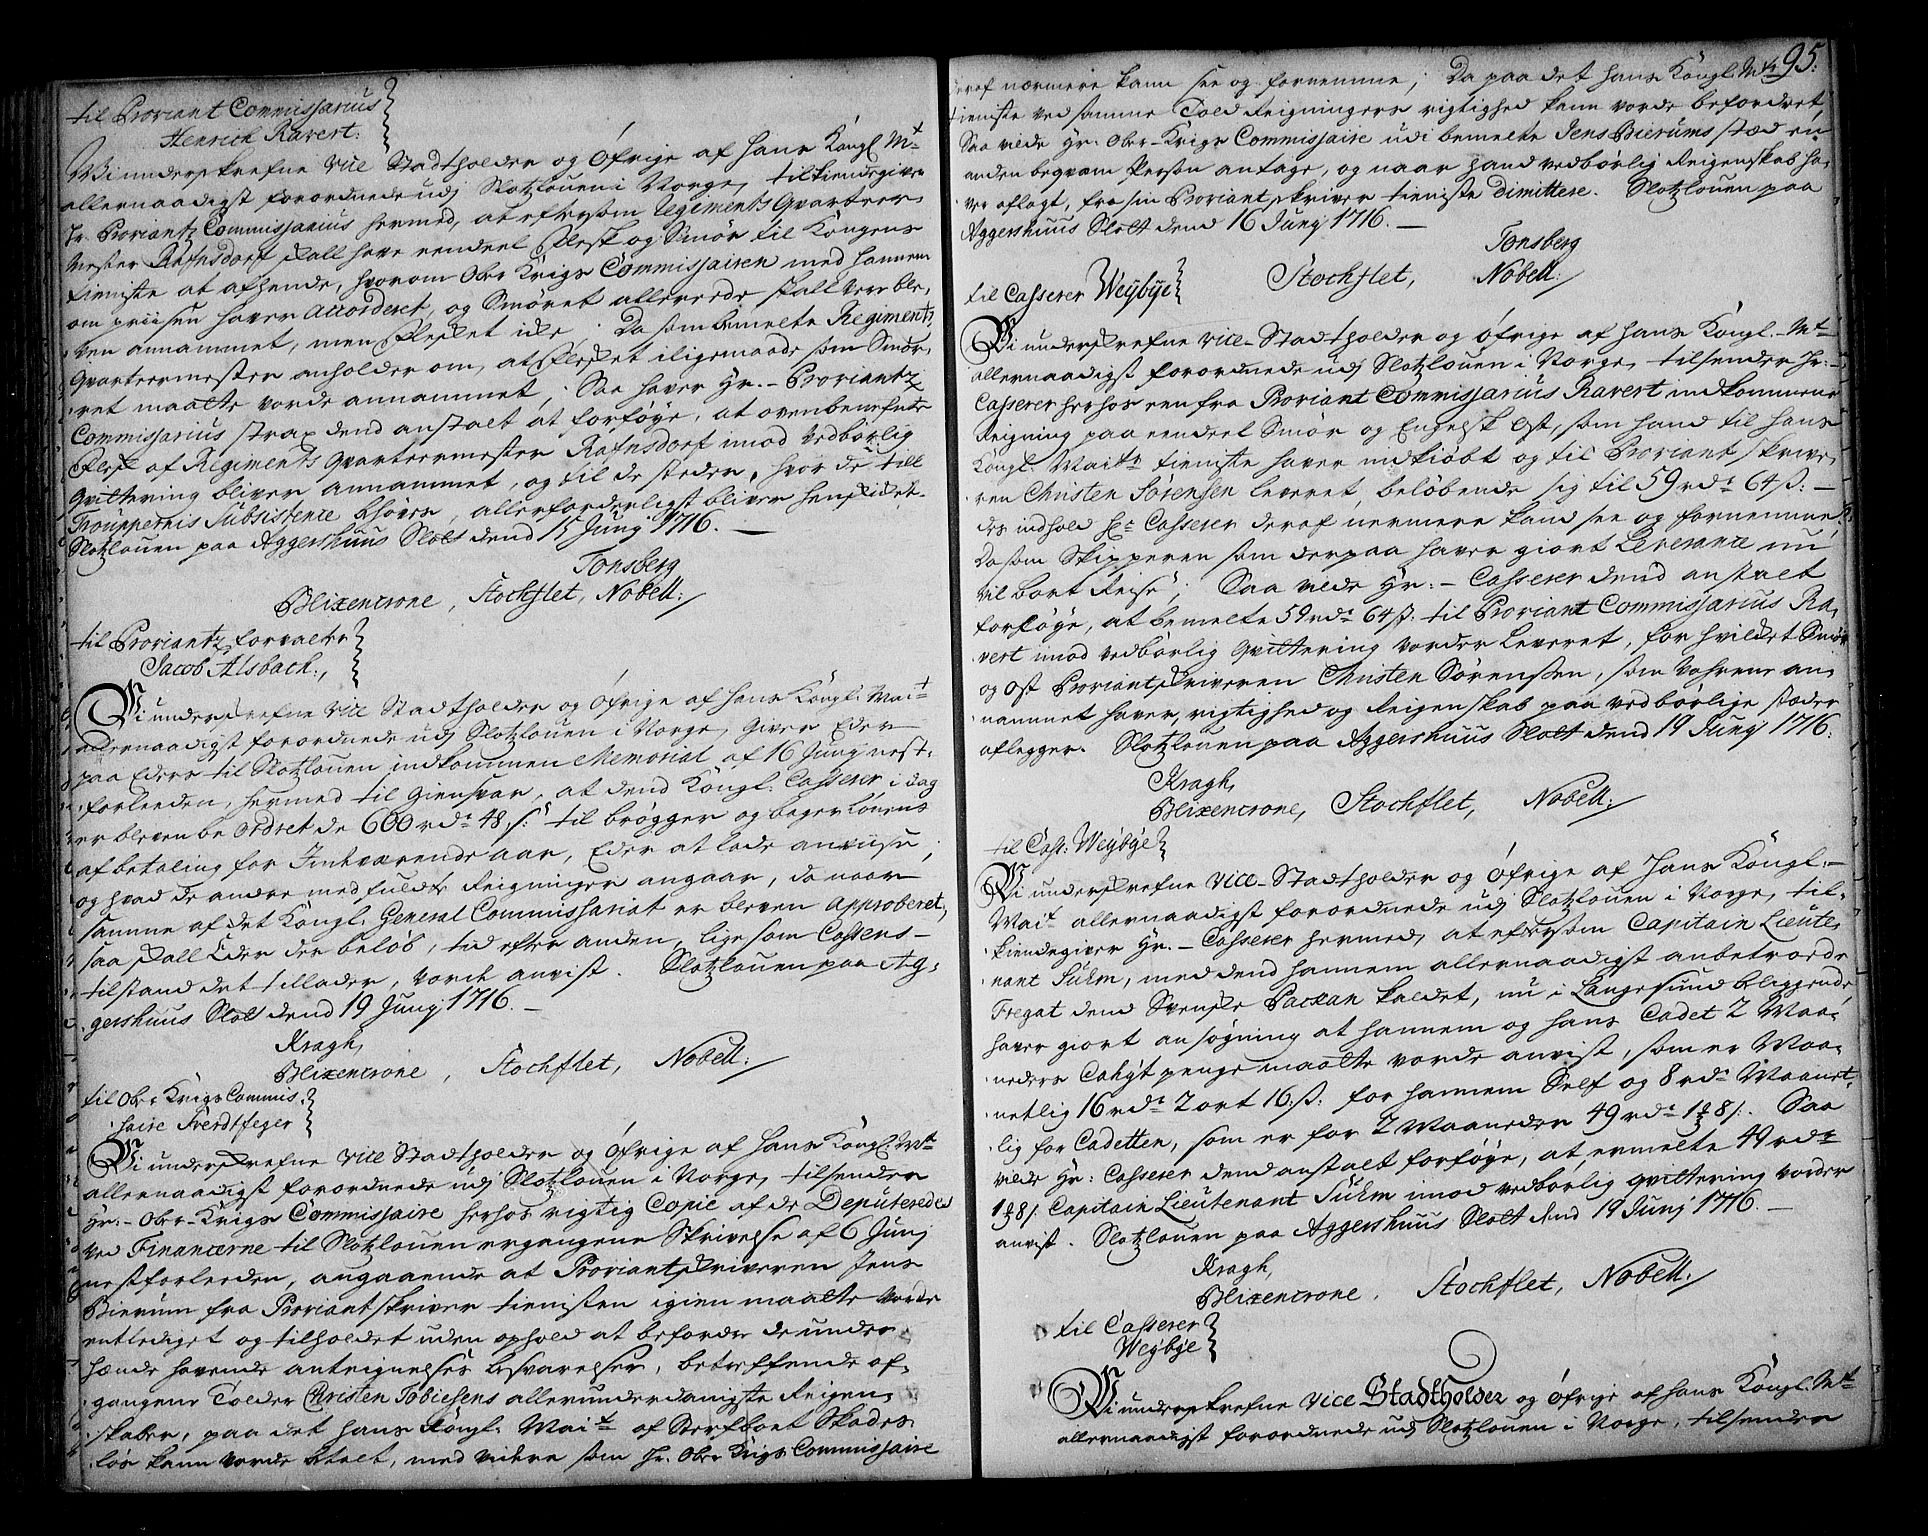 til Proviant Commissarius
Henrich Ravert.
Vi underskrefne Vice Stadtholder og Øfrige af Hans Kongl: Mt
allernaadigst forordnede udj Slotzlouen i Norge, tilkiendegiver
Hr. Proviantz Commissarius hermed, at eftersom Regiments Qvarteer
Mester Rafnsdorf skall have eendeel Flesk og Smør til Kongens
tieniste at afhende, hvorom Ober Krigs Commissairen med hannem
om priisen haver accorderet, og Smøret allereede skall være ble-
ven annammet, men Flesket icke; Da som bemelte Regiments
Qvarteermester anholder om, at Flesket iligemaade som Smør-
ret maatte vorde annammet; Saa haver Hr. Proviantz
Commissarius strax dend anstalt at forføye, at ovenbenefnte
Flesk af Regiments Qvarteermester Rafnsdorf imod vedbørlig
Qvittering bliver annammet, og til de steder, hvor de till
Trouppernis Subsistence behøves, allerforderligst bliver henskicket.
Slotzlouen paa Aggershuus Slott dend 15 Junj 1716.
Tonsberg
Blixencrone, Stochflet, Nobell:/
til Proviantz forvalter
Jacob Alsbach.,
Vi underskrefne Vice Stadtholder og Øfrige af Hans Kongl: Mait
allernaadigst forordnede udj Slotzlouen i Norge, giver Eder
paa Eders til Slotzlouen indkommen Memorial af 16 Junj nest-
forleeden, hermed til giensvar, at dend Kongl. Casserer i dag
er bleven beordret de 600 rdr 48 s: til brøgger og bager lønens
afbetaling for Indeværende aar, Eder at lade anviise;
og hvad de andre medfuldte Reigninger angaar, da naar
samme af det Kongl. General Commissariat er bleven approberet,
saa skall Eder der beløb, tid efter anden, lige som Cassens
tilstand det tillader, vorde anvist. Slotzlouen paa Ag-
gershuus Slott dend 19 Junj 1716.
Kragh,
Blixencrone, Stochflet, Nobell:/
til Ober Krigs Commis-
saire Fverdtfeger
Vi underskrefne Vice Stadtholder og Øfrige af Hans Kongl: Mt
allernaadigst forordnede udj Slotzlouen i Norge, tilsender
Hr. Ober-Krigs Commissaire herhos rigtig Copie af de Deputerede
ved Financerne til Slotzlouen ergangene Skrivelse af 6 Junj
nestforleeden, angaaende at Proviantskriveren Jens
Bierum fra Proviantskriver tienisten igien maatte vorde
entlediget og tilholdet uden ophold at befordre de under
hænde havende antegnelsers besvarelser, betreffende af-
gangene Tolder Christen Tobiesens allerunderdanigste Reigen-
skaber, paa det Hans Kongl. Mait af Sterfboet Skades-
løs kunn vorde betalt, med videre som Hr. Ober Krigs Commissaire
95.
deraf nærmere kann see og fornemme; Da paa det Hans Kongl: Mts
tieniste ved samme Told Reigningers rigtighed kann vorde befordret,
Saa vilde Hr. Ober-Krigs Commissaire udi bemelte Jens Bierums stæd en
anden beqvem Person antage, og naar hand vedbørlig Reigenskab ha-
ver aflagt, fra sin Proviantskriver tieniste dimittere. Slotzlouen paa
Aggershuus Slott dend 16 Junj 1716.
Tonsberg
Stochflet, Nobell:/
til Casserer Weÿbÿe
Vi underskrefne Vice-Stadtholder og Øfrige af Hans Kongl. Mt
allernaadigst forordnede udj Slotzlouen i Norge, tilsender Hr.
Casserer herhos een fra Proviant Commissarius Ravert indkommene
Reigning paa eendeel Smør og Engelsk Ost, som hand til Hans
Kongl. Maits tieniste haver indkiøbt og til Proviant skrive-
ren Christen Sørensen leveret, beløbende sig til 59 rdr 64 s:
des indhold Hr: Casserer deraf nermere kand see og fornemme:
Da som Skipperen som derpaa haver giort Leverance nu
vil bort Reise; Saa vilde Hr. Casserer dend anstalt
forføye, at bemelte 59 rdr 64 s. til Proviant Commissarius Ra-
vert imod vedbørlig Qvittering vorder leveret, for hvilcket Smør
og Ost Proviantskriveren Christen Sørenssen, som Vahrene an-
nammet haver, rigtighed og Reigenskab paa vedbørlige stæder
aflegger. Slotzlouen paa Aggershuus Slott dend 19 Junj 1716.
Kragh,
Blixencrone, Stochflet, Nobell:/
til Cass: Weÿbÿe
Vi underskrefne Vice-Stadtholder og Øfrige af Hans Kongl:
Mait allernaadigst forordnede udj Slotzlouen i Norge, til-
kiendegiver Hr. Casserer hermed, at eftersom Capitain Lieute-
nant Suhm, med dend hannem allernaadigst anbetroede
Fregat dend Svenske Packan kaldet, nu i Langesund beliggende,
haver giort ansøgning at hannem og hans Cadet 2 Maa-
neders Cahÿt penge maatte vorde anvist, som er Maa-
netlig 16 rdr 2 ort 16 s: for hannem Self og 8 rdr Maanet-
lig for Cadetten, som er for 2 Maaneder 49 rdr 1 ort 8 s. Saa
vilde Hr. Casserer dend anstalt forføye, at ermelte 49 rdr
1 ort 8 s. Capitain Lieutenant Suhm imod vedbørlig qvittering vorder
anvist. Slotzlouen paa Aggershuus Slott dend 19 Junj 1716.
Kragh,
Blixencrone, Stochflet, Nobell:/
til Casserer
Weÿbÿe
Vi underskrefne Vice Stadtholder og Øfrige af Hans Kongl: Mt
allernaadigst forordnede udj Slotzlouen i Norge, tilsender